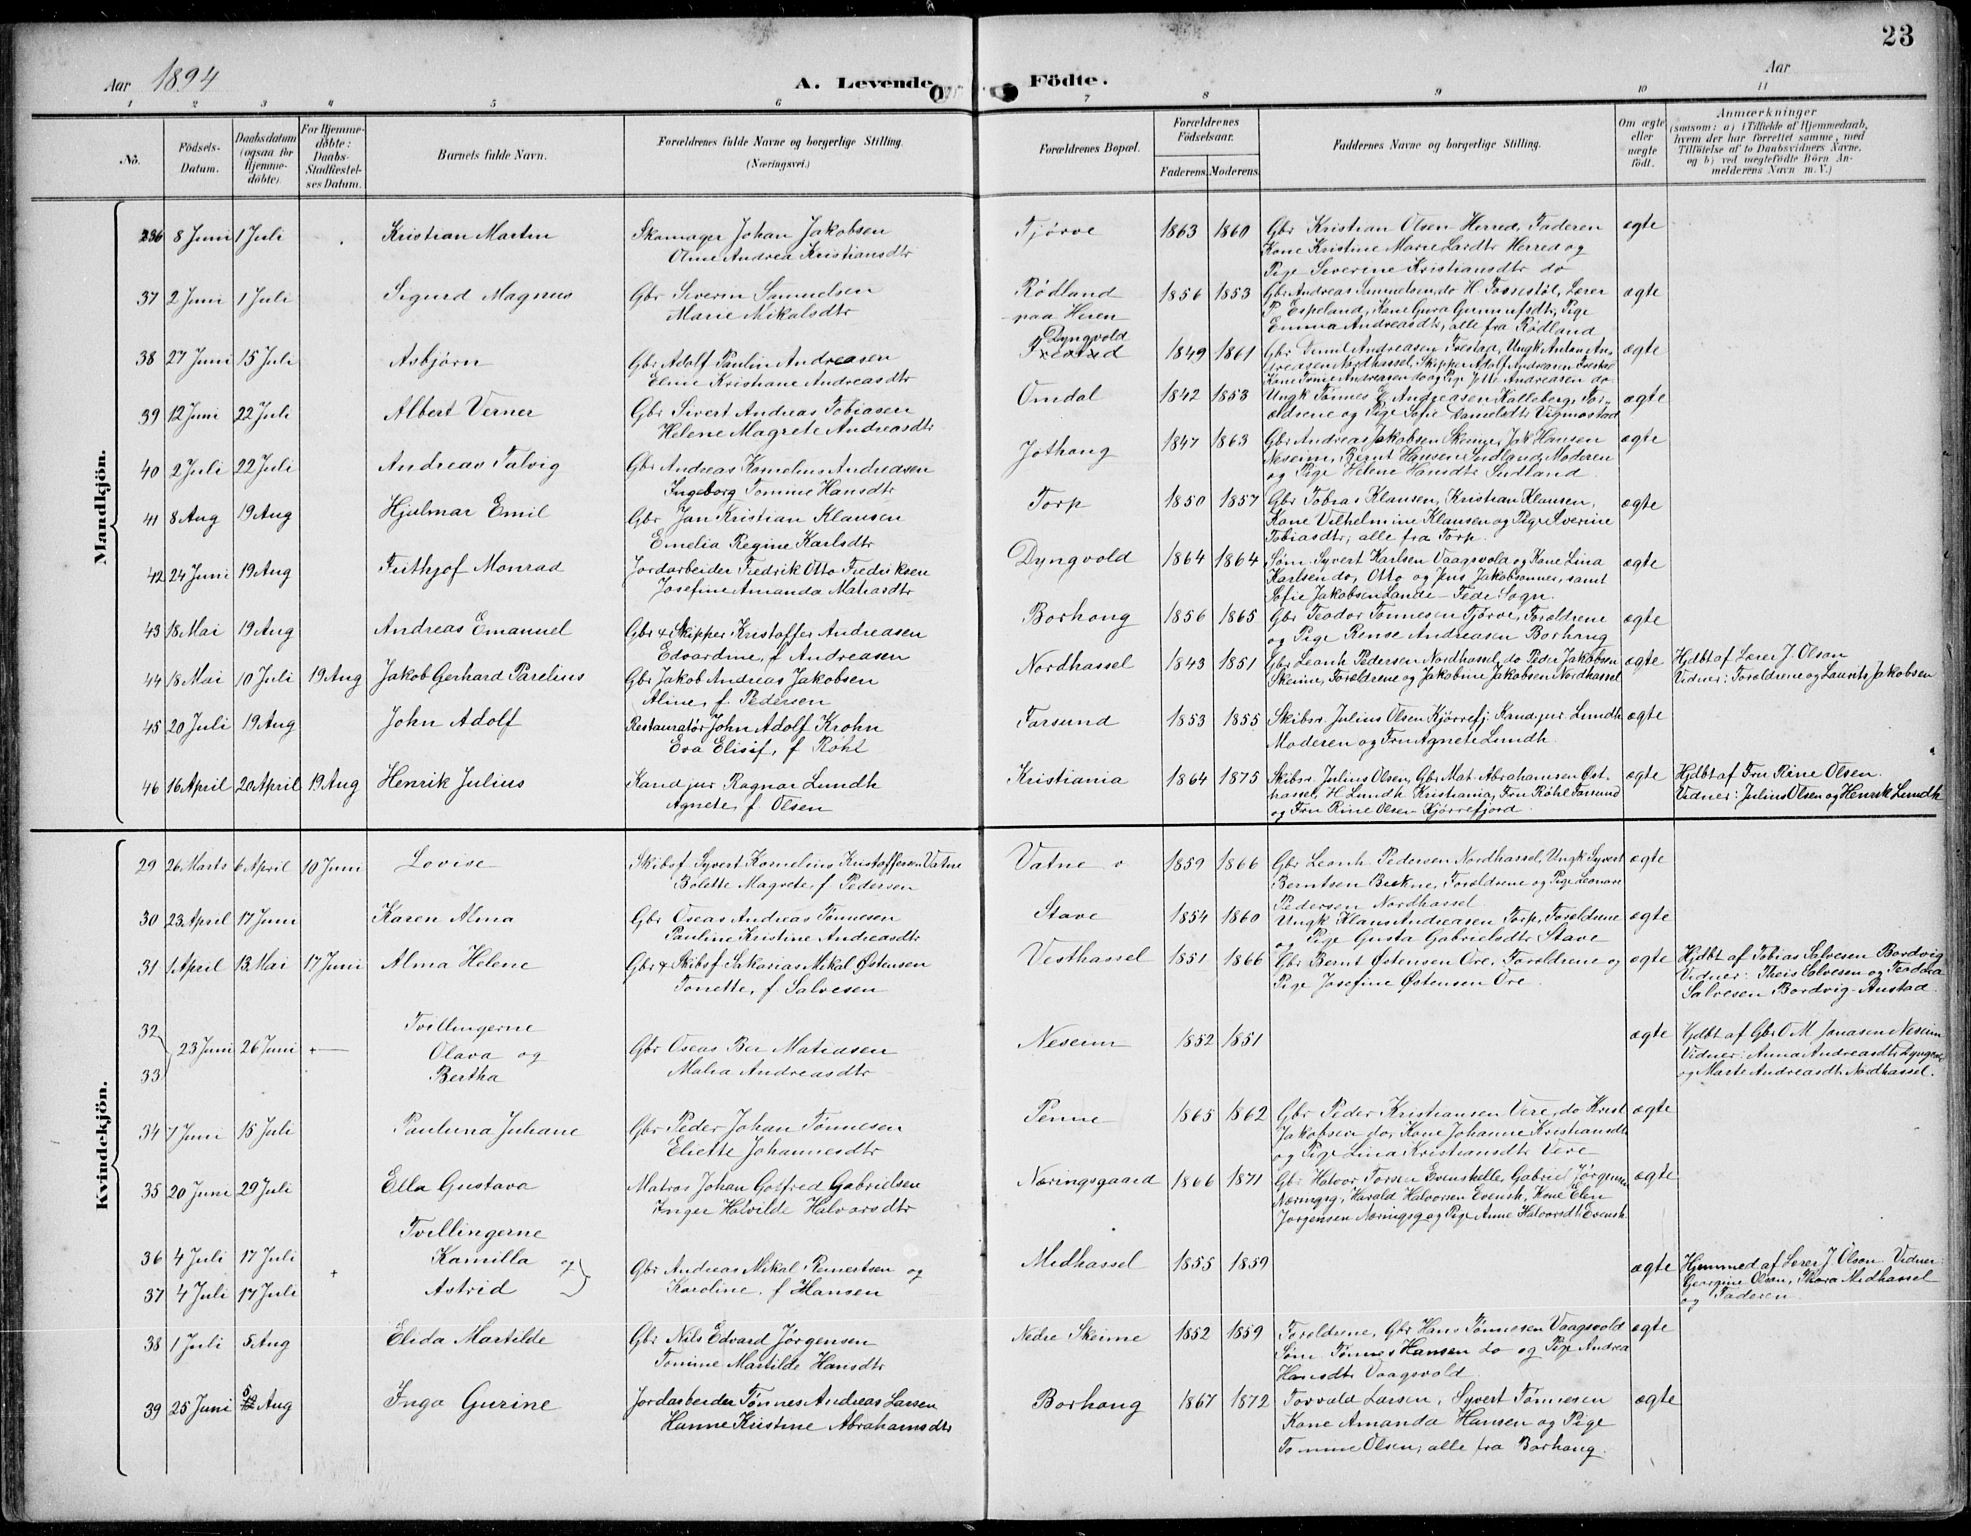 23
Aar 1894
A. Levende Födte.
Aar
1 2 3 4 5 6 7 8 9 10 11
No.
Födsels-Datum.
Daabsdatum (ogsaa for Hjemme-döbte).
For Hjemme-döbte: Daabs-Stadfæstel-ses Datum.
Barnets fulde Navn.
Forældrenes fulde Navne og borgerlige Stilling. (Næringsvei.)
Forældrenes Bopæl.
Forældrenes Födselsaar.
Faderens. Moderens.
Faddernes Navne og borgerlige Stilling.
Om ægte eller uægte födt.
Anmærkninger
(saasom: a) i Tilfælde af Hjemmedaab, hvem der har forrettet samme, med Tilföielse af to Daabsvidners Navne, og b) ved uægtefödte Börn An-melderens Navn m. V.)
Mandkjön.
236 8 Juni 1 Juli Kristian Martin Skomager Johan Jakobsen Tjørve 1863 1860 Gbr Kristian Olsen Herred, Faderen ægte
Andrea Kristiansdtr Kone Kristine Marie Larsdtr Herred og
Pige Severine Kristiansdtr do
37 2 Juni 1 Juli Sigurd Magnus Gbr Severin Samuelsen Rødland 1856 1853 Gbr Andreas Samuelsen, do H Fossestøl, Lærer ægte
Marie Mikalsdtr paa Heien P. Espeland, Kone Gura Gunnufsdtr, Pige
Emma Andreasdtr, alle fra Rødland
38 27 Juni 15 Juli Asbjørn Gbr Adolf Paulin Andreasen Dyngvold 1849 1861 Gbr Andreasen Frestad, Ungk Anton An- ægte
Kristiane Andreasdtr dreasen Nordhassel, Skipper Adolf Andreasen Frestad
Kone Tomie Andreassen do og Pige Jette Andreasen do
39 12 Juni 22 Juli Albert Verner Gbr Sivert Andreas Tobiasen Omdal 1842 1853 Ungk Tønnes E Andreasen Kalleberg, For- ægte
Helene Magrete Andreasdtr ældrene og Pige Sofie Danielsdtr Vigmostad
40 2 Juli 22 Juli Andreas Talvig Gbr Andreas Kornelius Andreasen Jøthaug 1847 1863 Gbr Andreas Jakobsen Skeime, Jak Hansen ægte
Ingeborg Tomine Hansdtr Neseim, Bernt Hansen Sudland, Moderen
og Pige Helene Hansdtr Sudland
41 8 Aug 19 Aug Hjalmar Emil Gbr Jan Kristian Klausen Torp 1850 1857 Gbr Tobias Klausen, Kristian Klausen, ægte
Emelia Regine Karlsdtr Kone Vilhelmine Klausen og Pige Severine
Tobiasdtr, alle fra Torp
42 24 Juni 19 Aug Frithjof Monrad Jordarbeider Fredrik Otto Fredriksen Dyngvold 1864 1864 Søm Syvert Karlsen Vaagsvold og Kone Lina ægte
Josefine Amanda Matiasdtr Karlsen do, Otto og Jens Jakobsønner, samt
Sofie Jakobsen Lande – Fede Sogn.
43 18 Mai 19 Aug Andreas Emanuel Gbr & Skipper Kristoffer Andreasen Borhaug 1856 1865 Gbr Teodor Tønnesen Tjørve, Forældrene ægte
Edvardine, f Andreasen og Pige Rense Andreasen Borhaug
44 18 Mai 10 Juli 19 Aug Jakob Gerhard Parelius Gbr Jakob Andreas Jakobsen Nordhassel 1843 1851 Gbr Leonh Pedersen Nordhassel, do Peder Jakobsen ægte Hjdbt af Lærer J. Olsen
Aline, f. Pedersen Skeime, Forældrene og Jakobine Jakobsen Nordhassel Vidner: Forældrene og Laurits Jakobsen
45 20 Juli 19 Aug John Adolf Restauratør John Adolf Krohn Farsund 1853 1855 Skibsr. Julius Olsen Kjørrefj. Kand. jur. Lundh ægte
Eva Elisif, f Røhl Moderen og Fru Agnete Lundh
46 16 April 20 April 19 Aug Henrik Julius Kand jur Ragnar Lundh Kristiania 1864 1875 Skibsr. Julius Olsen, Gbr Mat. Abrahamsen Øst- ægte Hjdbt af Fru Rine Olsen.
Agnete, f. Olsen hassel, H. Lundh Kristiania, Fru Røhl Farsund Vidner: Julius Olsen og Henrik Lundh
og Fru Rine Olsen Kjørrefjord
Kvindekjön.
29 26 Marts 6 April 10 Juni Lovise Skibsf Syvert Kornelius Kristoffersen Vatne Vatne 1859 1866 Gbr Leonh. Pedersen Nordhassel, Ungk Syvert ægte
Bolette Magrete, f Pedersen Berntsen, Forældrene og Pige Leonore
Pedersen Nordhassel
30 23 April 17 Juni Karen Alma Gbr Oseas Andreas Tønnesen Stave 1854 1860 Ungk Klaus Andreasen Torp, Forældrene ægte
Pauline Kristine Andreasdtr og Pige Gusta Gabrielsdtr Stave
31 1 April 13 Mai 17 Juni Alma Helene Gbr & Skibsf Sakarias Mikal Østensen Vesthassel 1851 1866 Gbr Bernt Østensen Ore, Forældrene og ægte Hjdbt af Tobias Salvesen Bordvig
Tonette, f Salvesen Pige Josefine Østensen Ore Vidner: Theis Salvesen og Teodora
Salvesen Bordvig-Anstad
32 Tvillingerne
23 Juni 26 Juni + Olava og Gbr Oseas Ber Matiasen Neseim 1852 1851 ægte Hjdbt af Gbr O M Jonasen Neseim
33 Bertha Malia Andreasdtr Vidner: Anna Andreasdtr
og Marte Andreasdtr Nordhassel.
34 7 Juni 15 Juli Paulina Juliane Gbr Peder Johan Tønnesen Penne 1865 1862 Gbr Peder Kristiansen Vere, do Krist ægte
Eliette Johannesdtr Jakobsen do, Kone Johanne Kristiansdtr
og Pige Lina Kristiansdtr Vere
35 20 Juni 29 Juli Ella Gustava Matros Johan Gotfred Gabrielsen Næringsgaard 1866 1871 Gbr Halvor Torsen Evenskelle, Gabriel Jørgensen ægte
Inger Halvorsdtr Næringsg, Harald Halvorsen Evensk, Kone Elen
Jørgensen Næringsg og Pige Anne Halvorsdtr Evensk
Tvillingerne
36 4 Juli 17 Juli Kamilla og Gbr Andreas Mikal Reinertsen og Midhassel 1855 1859 ægte Hjemmed af Lærer J. Olsen. Vidner:
37 4 Juli 17 Juli + Astrid Karoline, f Hansen Georgine Olsen, Thora Midhassel
og Faderen.
38 1 Juli 5 Aug Elida Martilde Gbr Nils Edvard Jørgensen Nedre Skeime 1852 1859 Forældrene, Gbr Hans Tønnesen Vaagsvold ægte
Tomine Martilde Hansdtr Søm Tønnes Hansen do og Pige Andrea
Hansdtr Vaagsvold
39 25 Juni 5 Aug Inga Gurine Jordarbeider Tønnes Andreas Larsen Borhaug 1867 1872 Torvald Larsen, Syvert Tønnesen ægte
Hanne Kristine Abrahamsdtr Kone Amanda Hansen og Pige
Tomine Olsen, alle fra Borhaug.